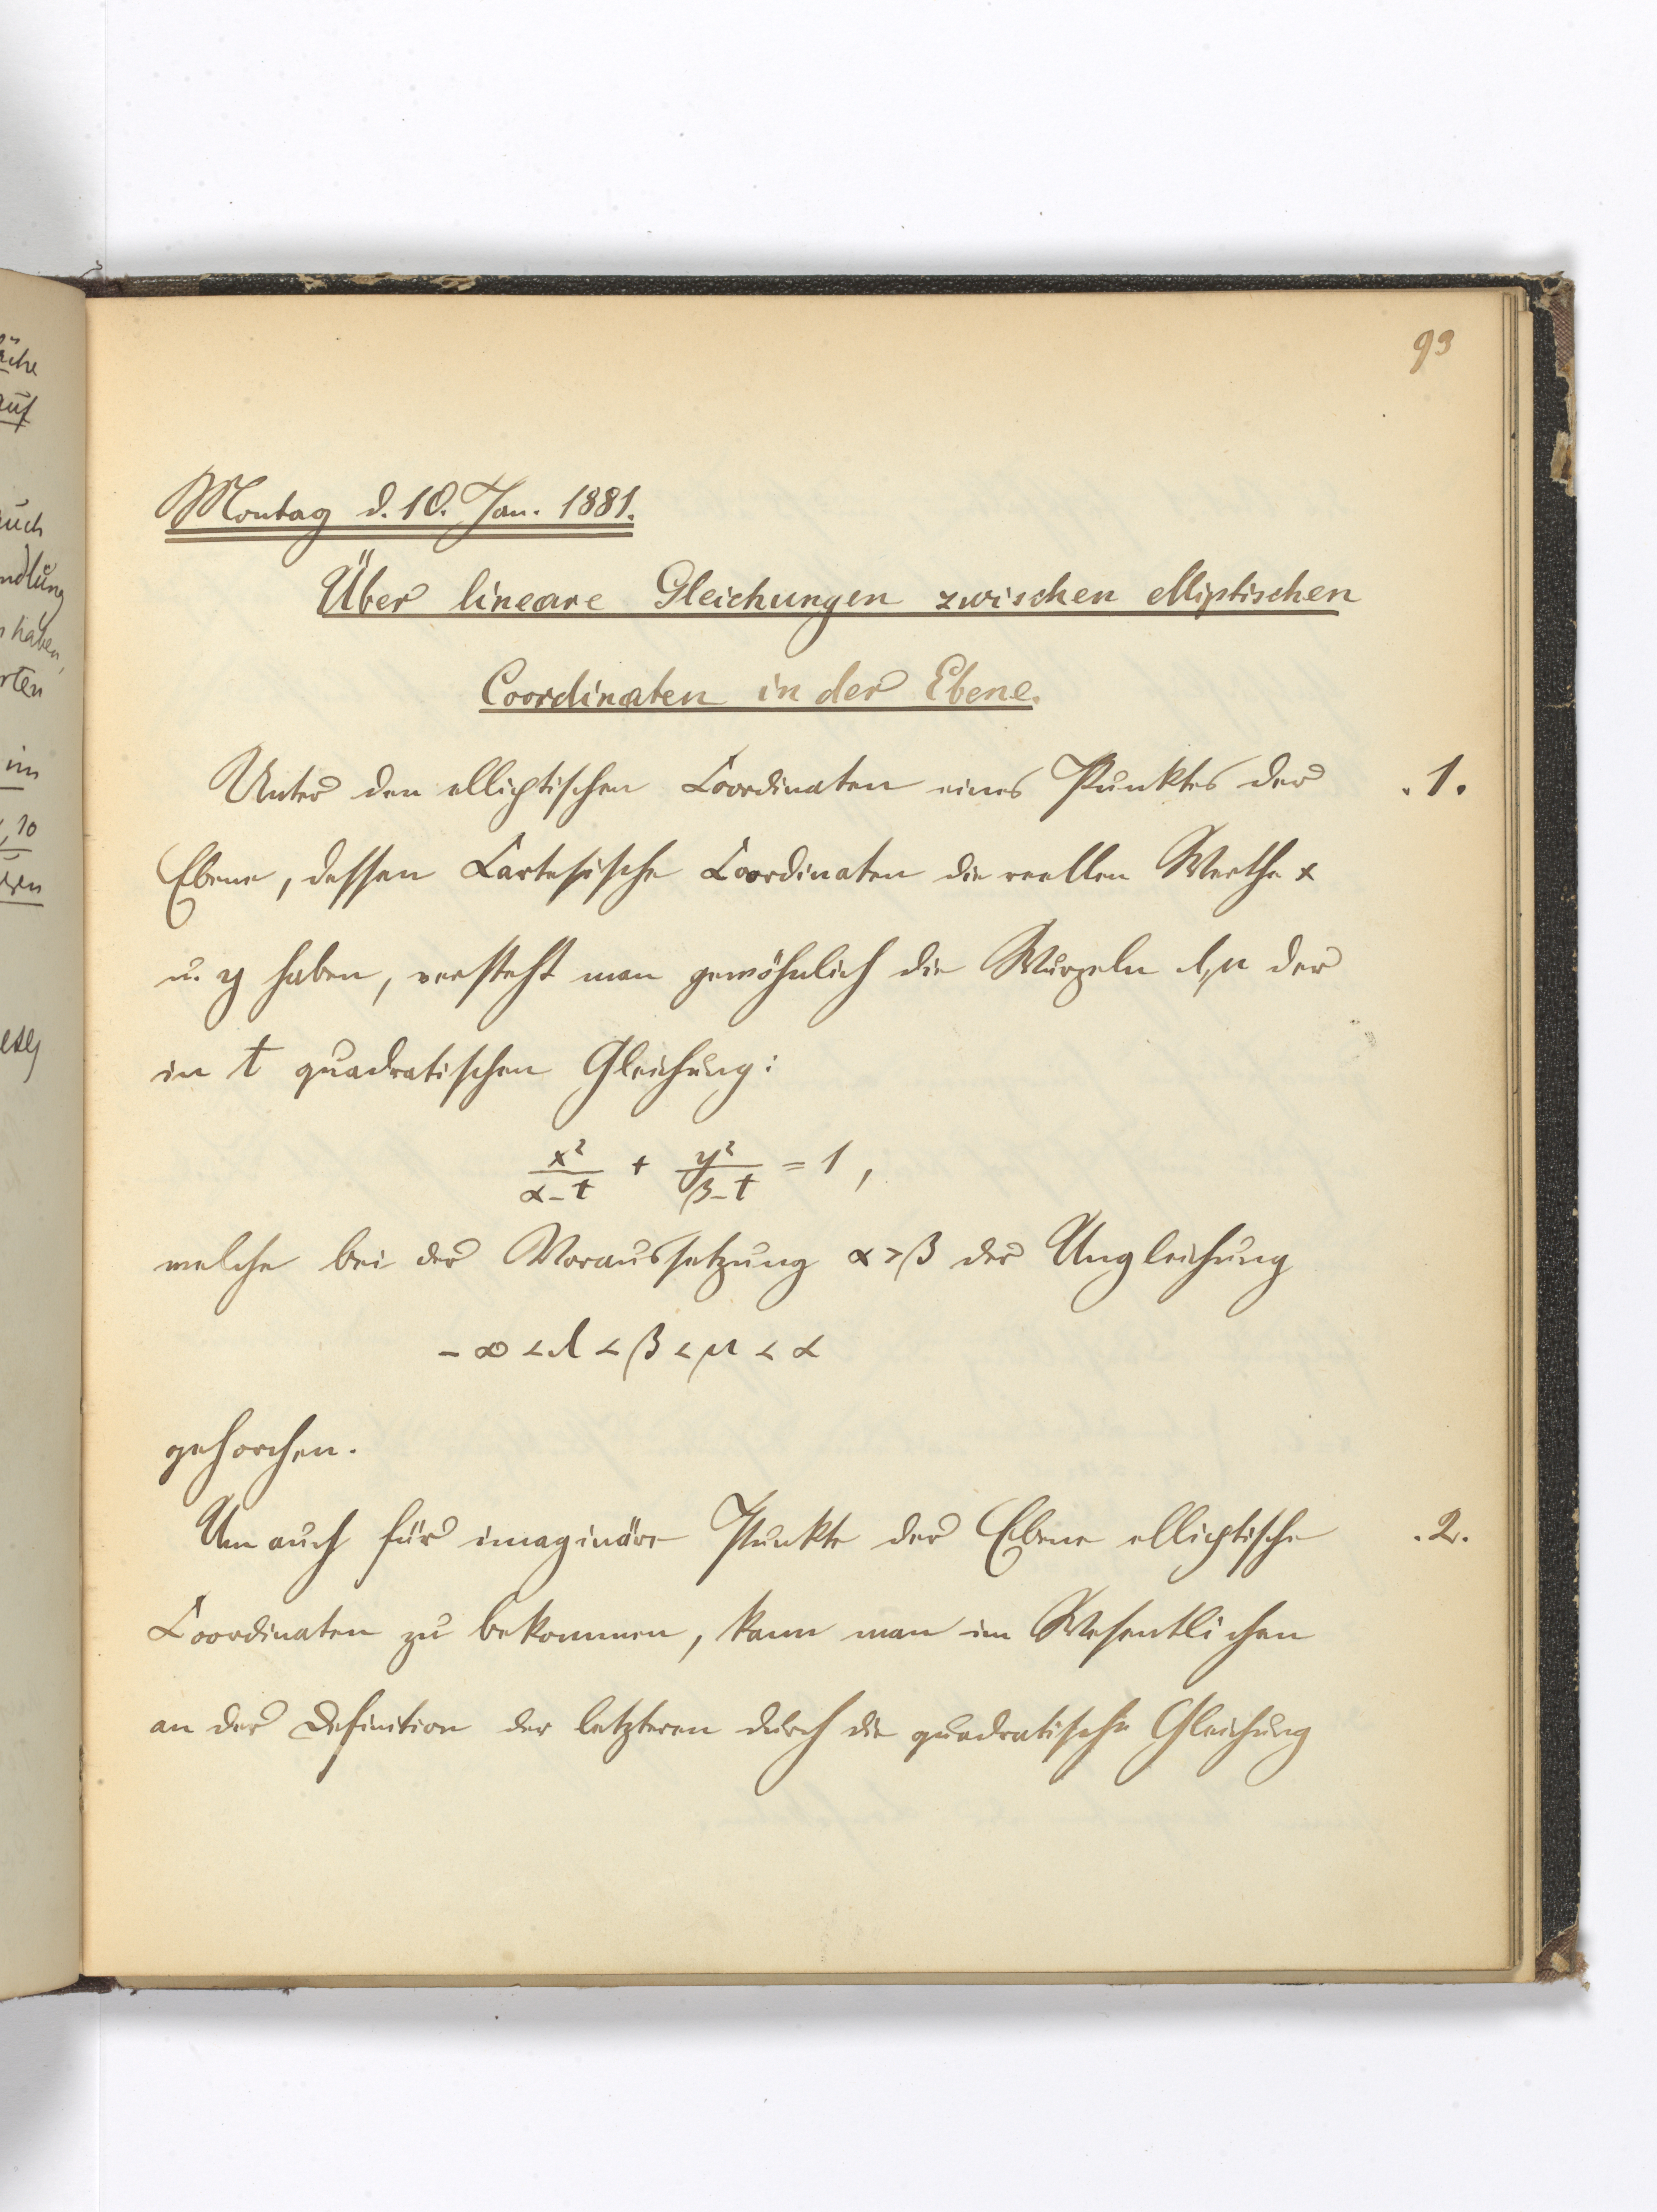 93
Montag d. 10. Jan. 1881.
Über lineare Gleichungen zwischen elliptischen
Coordinaten in der Ebene.
Unter den elliptischen Coordinaten eines Punktes der .1.
Ebene, dessen Cartesische Coordinaten die reellen Werthe x
u. y haben, versteht man gewöhnlich die Wurzeln λ, μ der
in t quadratischen Gleichung:
x²/(α-t) + y²/(β-t) = 1,
welche bei der Voraussetzung α > β der Ungleichung
-∞ < λ < β < μ < α
gehorchen.
Um auch für imaginäre Punkte der Ebene elliptische .2.
Coordinaten zu bekommen, kann man im Wesentlichen
an der Definition der letzteren durch die quadratische Gleichung
äche
auf
auch
ndlung
haben,
rten
im
10